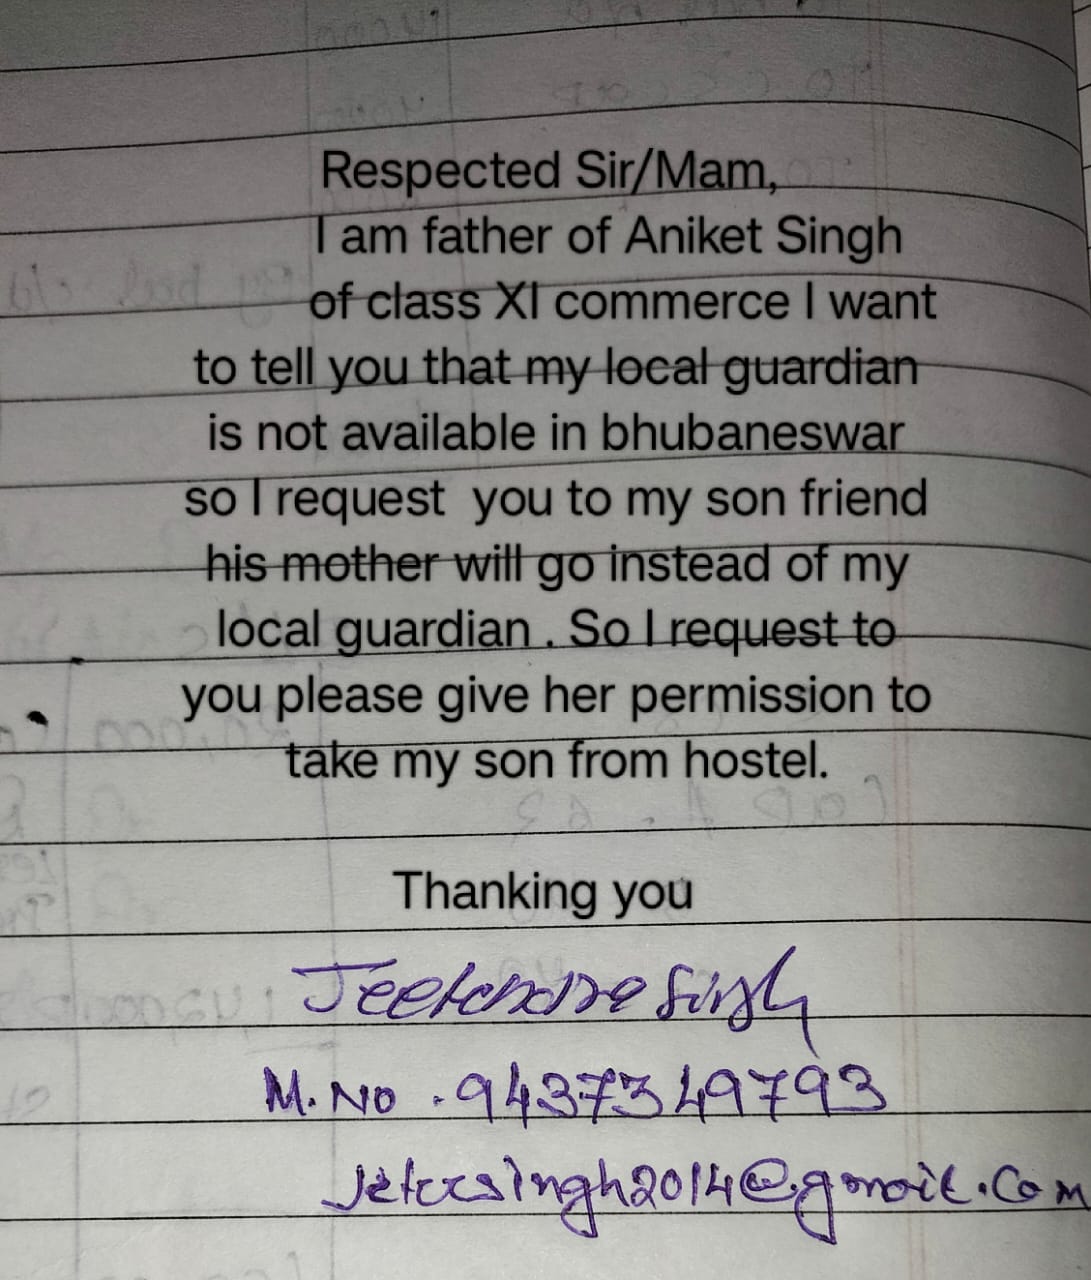 Respected Sir/Mam,
I am father of Aniket Singh
of class XI commerce I want
to tell you that my local guardian
is not available in bhubaneswar
so I request  you to my son friend
his mother will go instead of my
local guardian . So I request to
you please give her permission to
take my son from hostel.
Thanking you
Singh
M. No . 9437349793